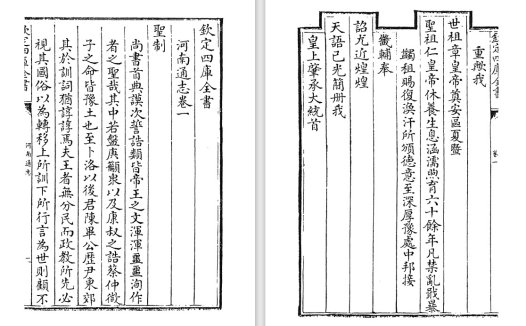 欽定四庫全書
河南通志卷一
聖制
尚書首典謨次誓誥類皆帝王之文渾渾噩噩洵作
者之聖哉其中若盤庚籲衆以及康叔之誥蔡仲微
子之命皆豫土也至卜洛以後君陳畢公歴尹東郊
其於訓詞猶諄諄焉夫王者無分民而政教所先必
視其國俗以為轉移上所訓下所行言為世則顧不
欽定四庫全書
河南通志
欽定四庫全書
重歟我
世祖章皇帝奠安區夏暨
聖祖仁皇帝休養生息涵濡煦育六十餘年凡禁亂戢暴
蠲租賜復渙汗所頒德意至深厚豫處中邦接
畿輔奉
詔尤近煌煌
天語已光簡册我
皇上肇承大統首